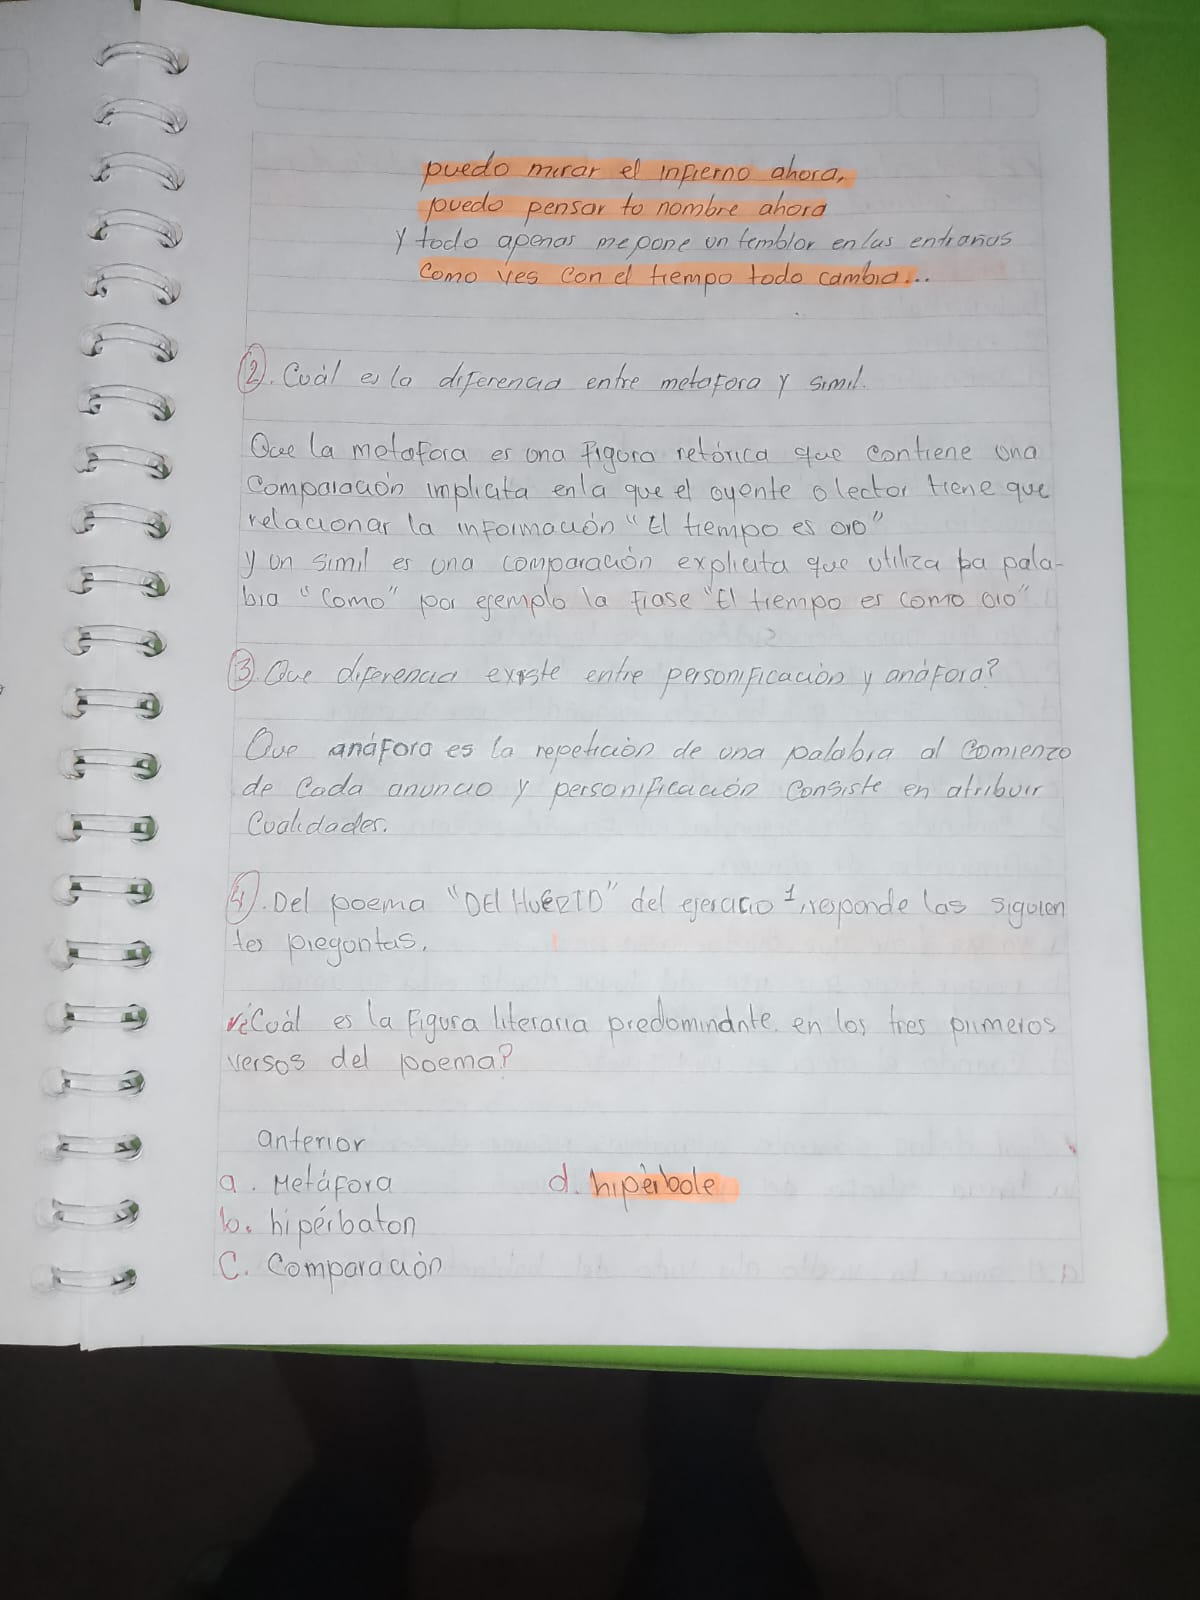 puedo mirar el infierno ahora,
puedo pensar tu nombre ahora
y todo apenas me pone un temblor en las entrañas
Como ves con el tiempo todo cambia...
2. Cuál es la diferencia entre metafora y simil.
Que la metafora es una figura retórica que contiene una
Comparación implicita en la que el oyente o lector tiene que
relacionar la información "El tiempo es oro"
y un simil es una comparación explicita que utiliza la pala-
bra "Como" por ejemplo la frase "El tiempo es como oro"
3. Que diferencia existe entre personificación y anáfora?
Que anáfora es la repetición de una palabra al comienzo
de Cada anuncio y personificación Consiste en atribuir
Cualidades.
4. Del poema "DEl HUERTO" del ejercicio 1, responde las siguien
tes preguntas.
¿Cuál es la figura literaria predominante en los tres primeros
versos del poema?
anterior
a. Metáfora d. hipérbole
b. hipérbaton
C. Comparación